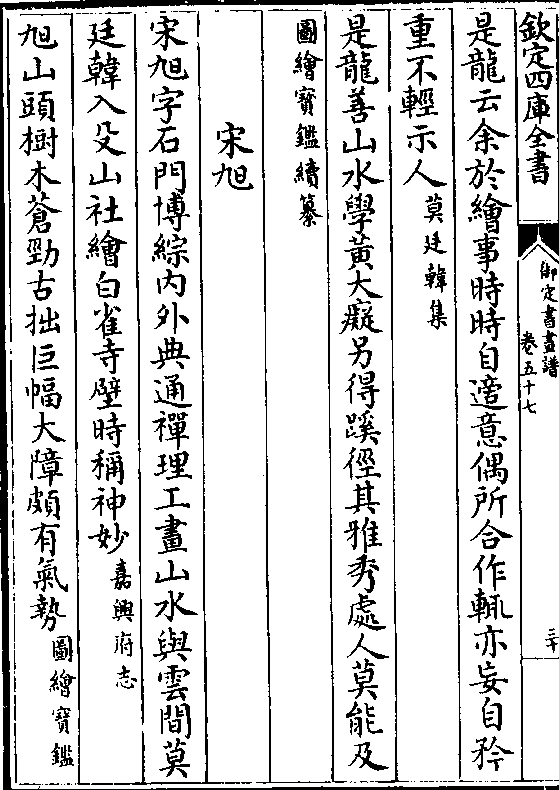 欽定四庫全書
御定書畫譜
卷五十七
三十
是龍云余於繪事時時自適意偶所合作輒亦妄自矜
重不輕示人莫廷韓集
是龍善山水學黃大癡另得蹊徑其雅秀處人莫能及
圖繪寶鑑續纂
宋旭
宋旭字石門博綜内外典通禪理工畫山水與雲間莫
廷韓入殳山社繪白雀寺壁時稱神妙嘉興府志
旭山頭樹木蒼勁古拙巨幅大障頗有氣勢圖繪寶鑑